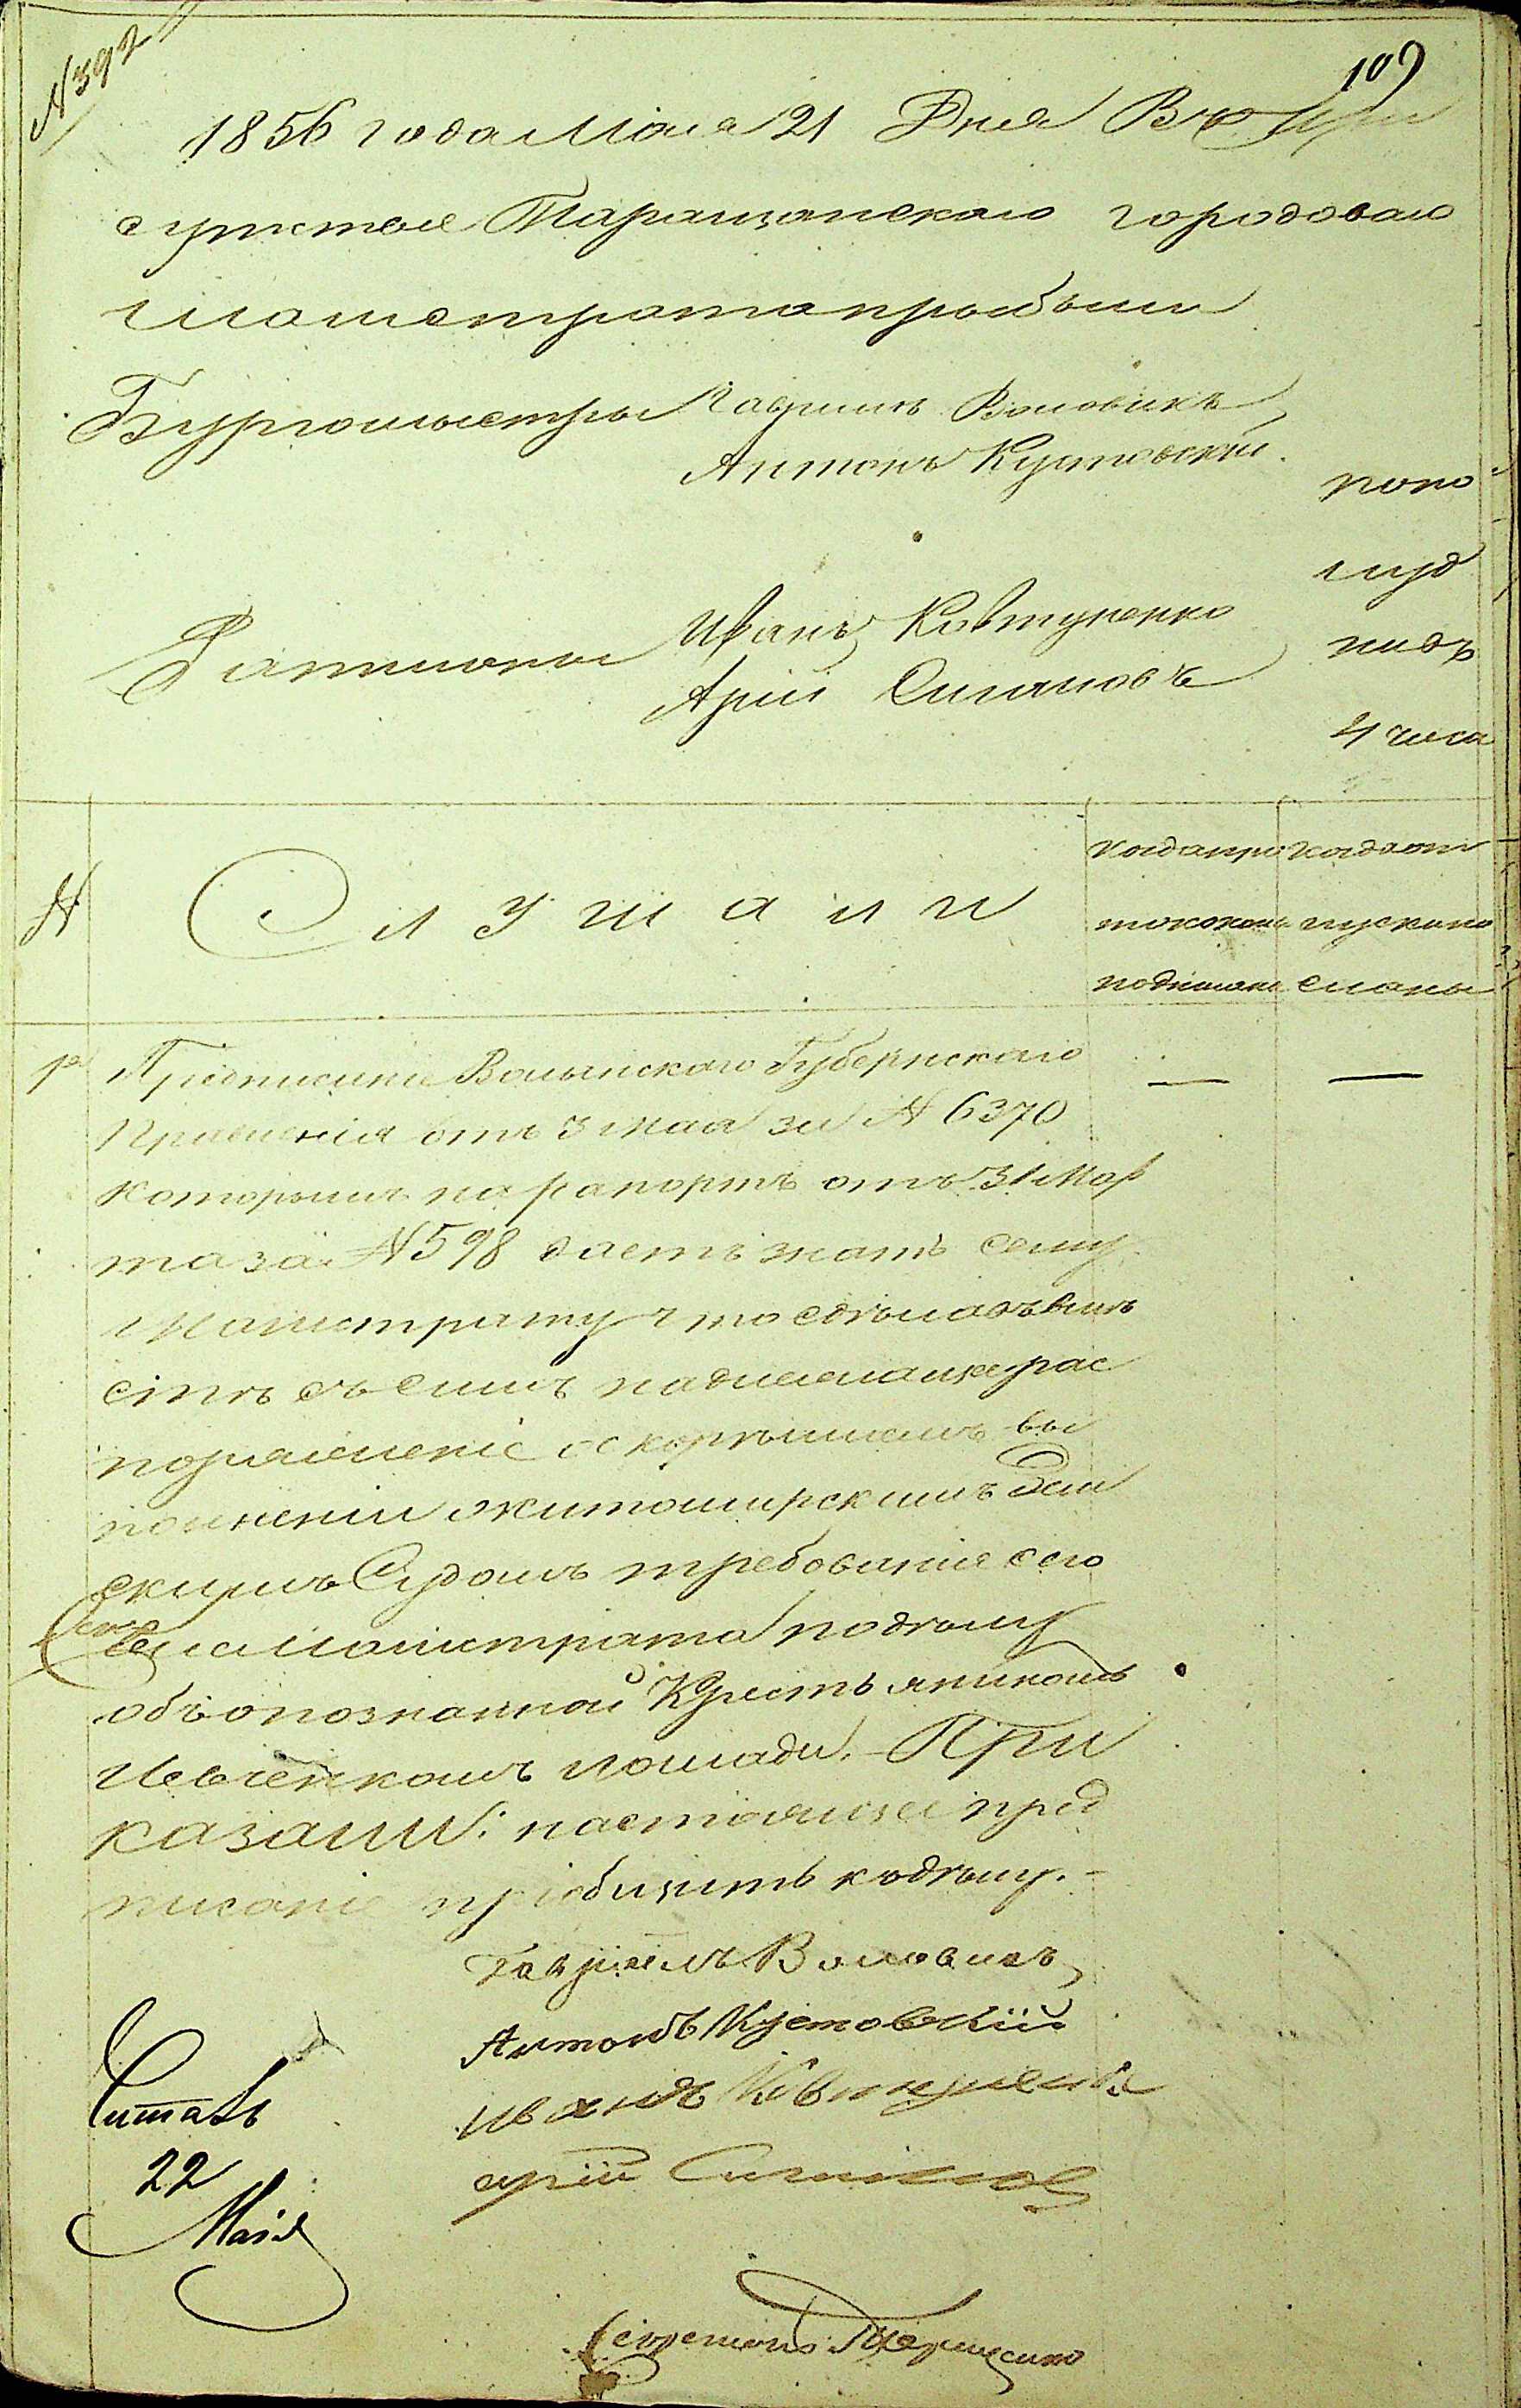 N 392
109
1856 года Маія 21 Дня Въ При
сутствіе Таращанскаго городоваго
Магистрата прибыли
Бургомистры Гавриилъ Воловикъ
Антонъ Кустовскій
попо
луд
Ратманы Иванъ Ковтуненко
Арій Симановъ
4 часа
N Слушали
когда про когда от
токолъ пускано
подписанъ сманы
Предписаніе Волынскаго Губернскаго
Правленія отъ 3 мая за N 6370
которымъ на рапортъ отъ 31 Мар
та за N 598 даетъ знать сему
Магистрату что сдѣлано вмѣ
стѣ съ симъ надлежащее рас
поряженіе о скорѣйшемъ вы
полненіи Житомирскимъ Зем
скимъ Судомъ требованія сего
Магистрата по дѣлу
объ опознанной Крестьяниномъ
Левченкомъ лошади. – При
казали: настоящее пред
писаніе пріобщить къ дѣлу. –
Гавриилъ Воловикъ
Антонъ Кустовскій
Иванъ Ковтуненко
Арій Симановъ
Читалъ
22
Маія
Секретарь